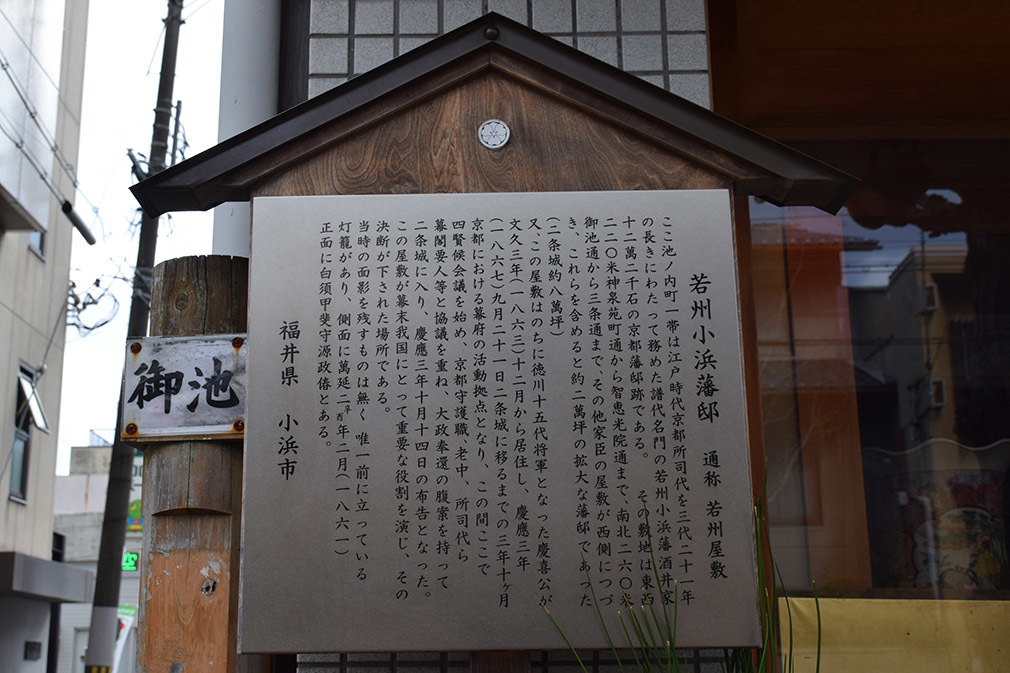 若州小浜藩邸　通称 若州屋敷
ここ池ノ内町一帯は江戸時代京都所司代を三代二十一年
の長きにわたって務めた譜代名門の若州小浜藩酒井家
十二萬二千石の京都藩邸跡である。　その敷地は東西
二二〇米神泉苑町通から智恵光院通まで、南北二六〇米
御池通から三条通まで、その他家臣の屋敷が西側につづ
き、これらを含めると約二萬坪の拡大な藩邸であった
(二条城約八萬坪)
又、この屋敷はのちに徳川十五代将軍となった慶喜公が
文久三年(一八六三)十二月から居住し、慶應三年
(一八六七)九月二十一日二条城に移るまでの三年十ヶ月
京都における幕府の活動拠点となり、この間ここで
四賢候会議を始め、京都守護職、老中、所司代ら
幕閣要人等と協議を重ね、大政奉還の腹案を持って
二条城に入り、慶應三年十月十四日の布告となった。
この屋敷が幕末我国にとって重要な役割を演じ、その
決断が下された場所である。
当時の面影を残すものは無く、唯一前に立っている
灯籠があり、側面に萬延二辛酉年二月(一八六一)
正面に白須甲斐守源政偆とある。
福井県　小浜市
御池